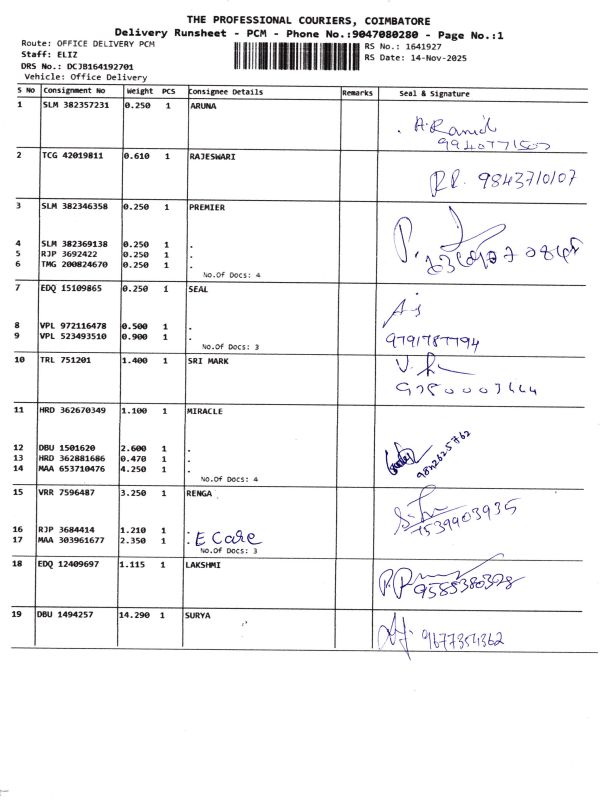 THE PROFESSIONAL COURIERS, COIMBATORE
Delivery Runsheet - PCM - Phone No.:9047080280 - Page No.:1
Route: OFFICE DELIVERY PCM
RS No.: 1641927
Staff: ELIZ
RS Date: 14-Nov-2025
DRS No.: DCJB164192701
Vehicle: Office Delivery
S No Consignment No Weight PCS Consignee Details Remarks Seal & Signature
1 SLM 382357231 0.250 1 ARUNA
2 TCG 42019811 0.610 1 RAJESWARI
RR. 9843710107
3 SLM 382346358 0.250 1 PREMIER
4 SLM 382369138 0.250 1 .
5 RJP 3692422 0.250 1 .
6 TMG 200824670 0.250 1 .
No.Of Docs: 4
7 EDQ 15109865 0.250 1 SEAL
8 VPL 972116478 0.500 1 .
9 VPL 523493510 0.900 1 .
9791787794
No.Of Docs: 3
10 TRL 751201 1.400 1 SRI MARK
11 HRD 362670349 1.100 1 MIRACLE
12 DBU 1501620 2.600 1 .
13 HRD 362881686 0.470 1 .
14 MAA 653710476 4.250 1 .
9842625762
No.Of Docs: 4
15 VRR 7596487 3.250 1 RENGA
7539903935
16 RJP 3684414 1.210 1 .
17 MAA 303961677 2.350 1 . E Care
No.Of Docs: 3
18 EDQ 12409697 1.115 1 LAKSHMI
9585380328
19 DBU 1494257 14.290 1 SURYA
9677354362